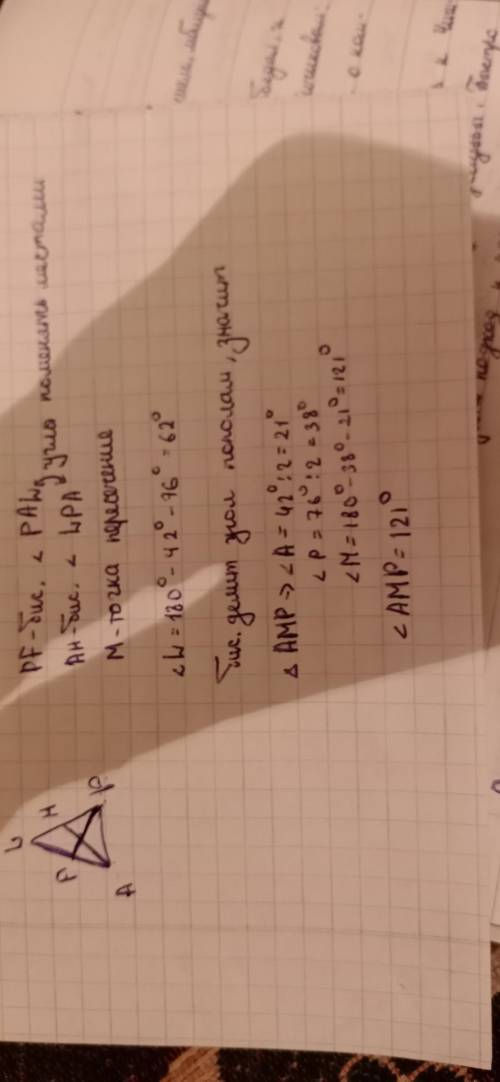 PF-бис. < PAW } угла поменять местами
AH-бис. < WPA
M-точка пересечение
<W=180°-42°-76°=62°
бис. делит угол пополам, значит
△ AMP => <A=42°:2=21°
<P=76°:2=38°
<M=180°-38°-21°=121°
<AMP=121°
W
F H
A P